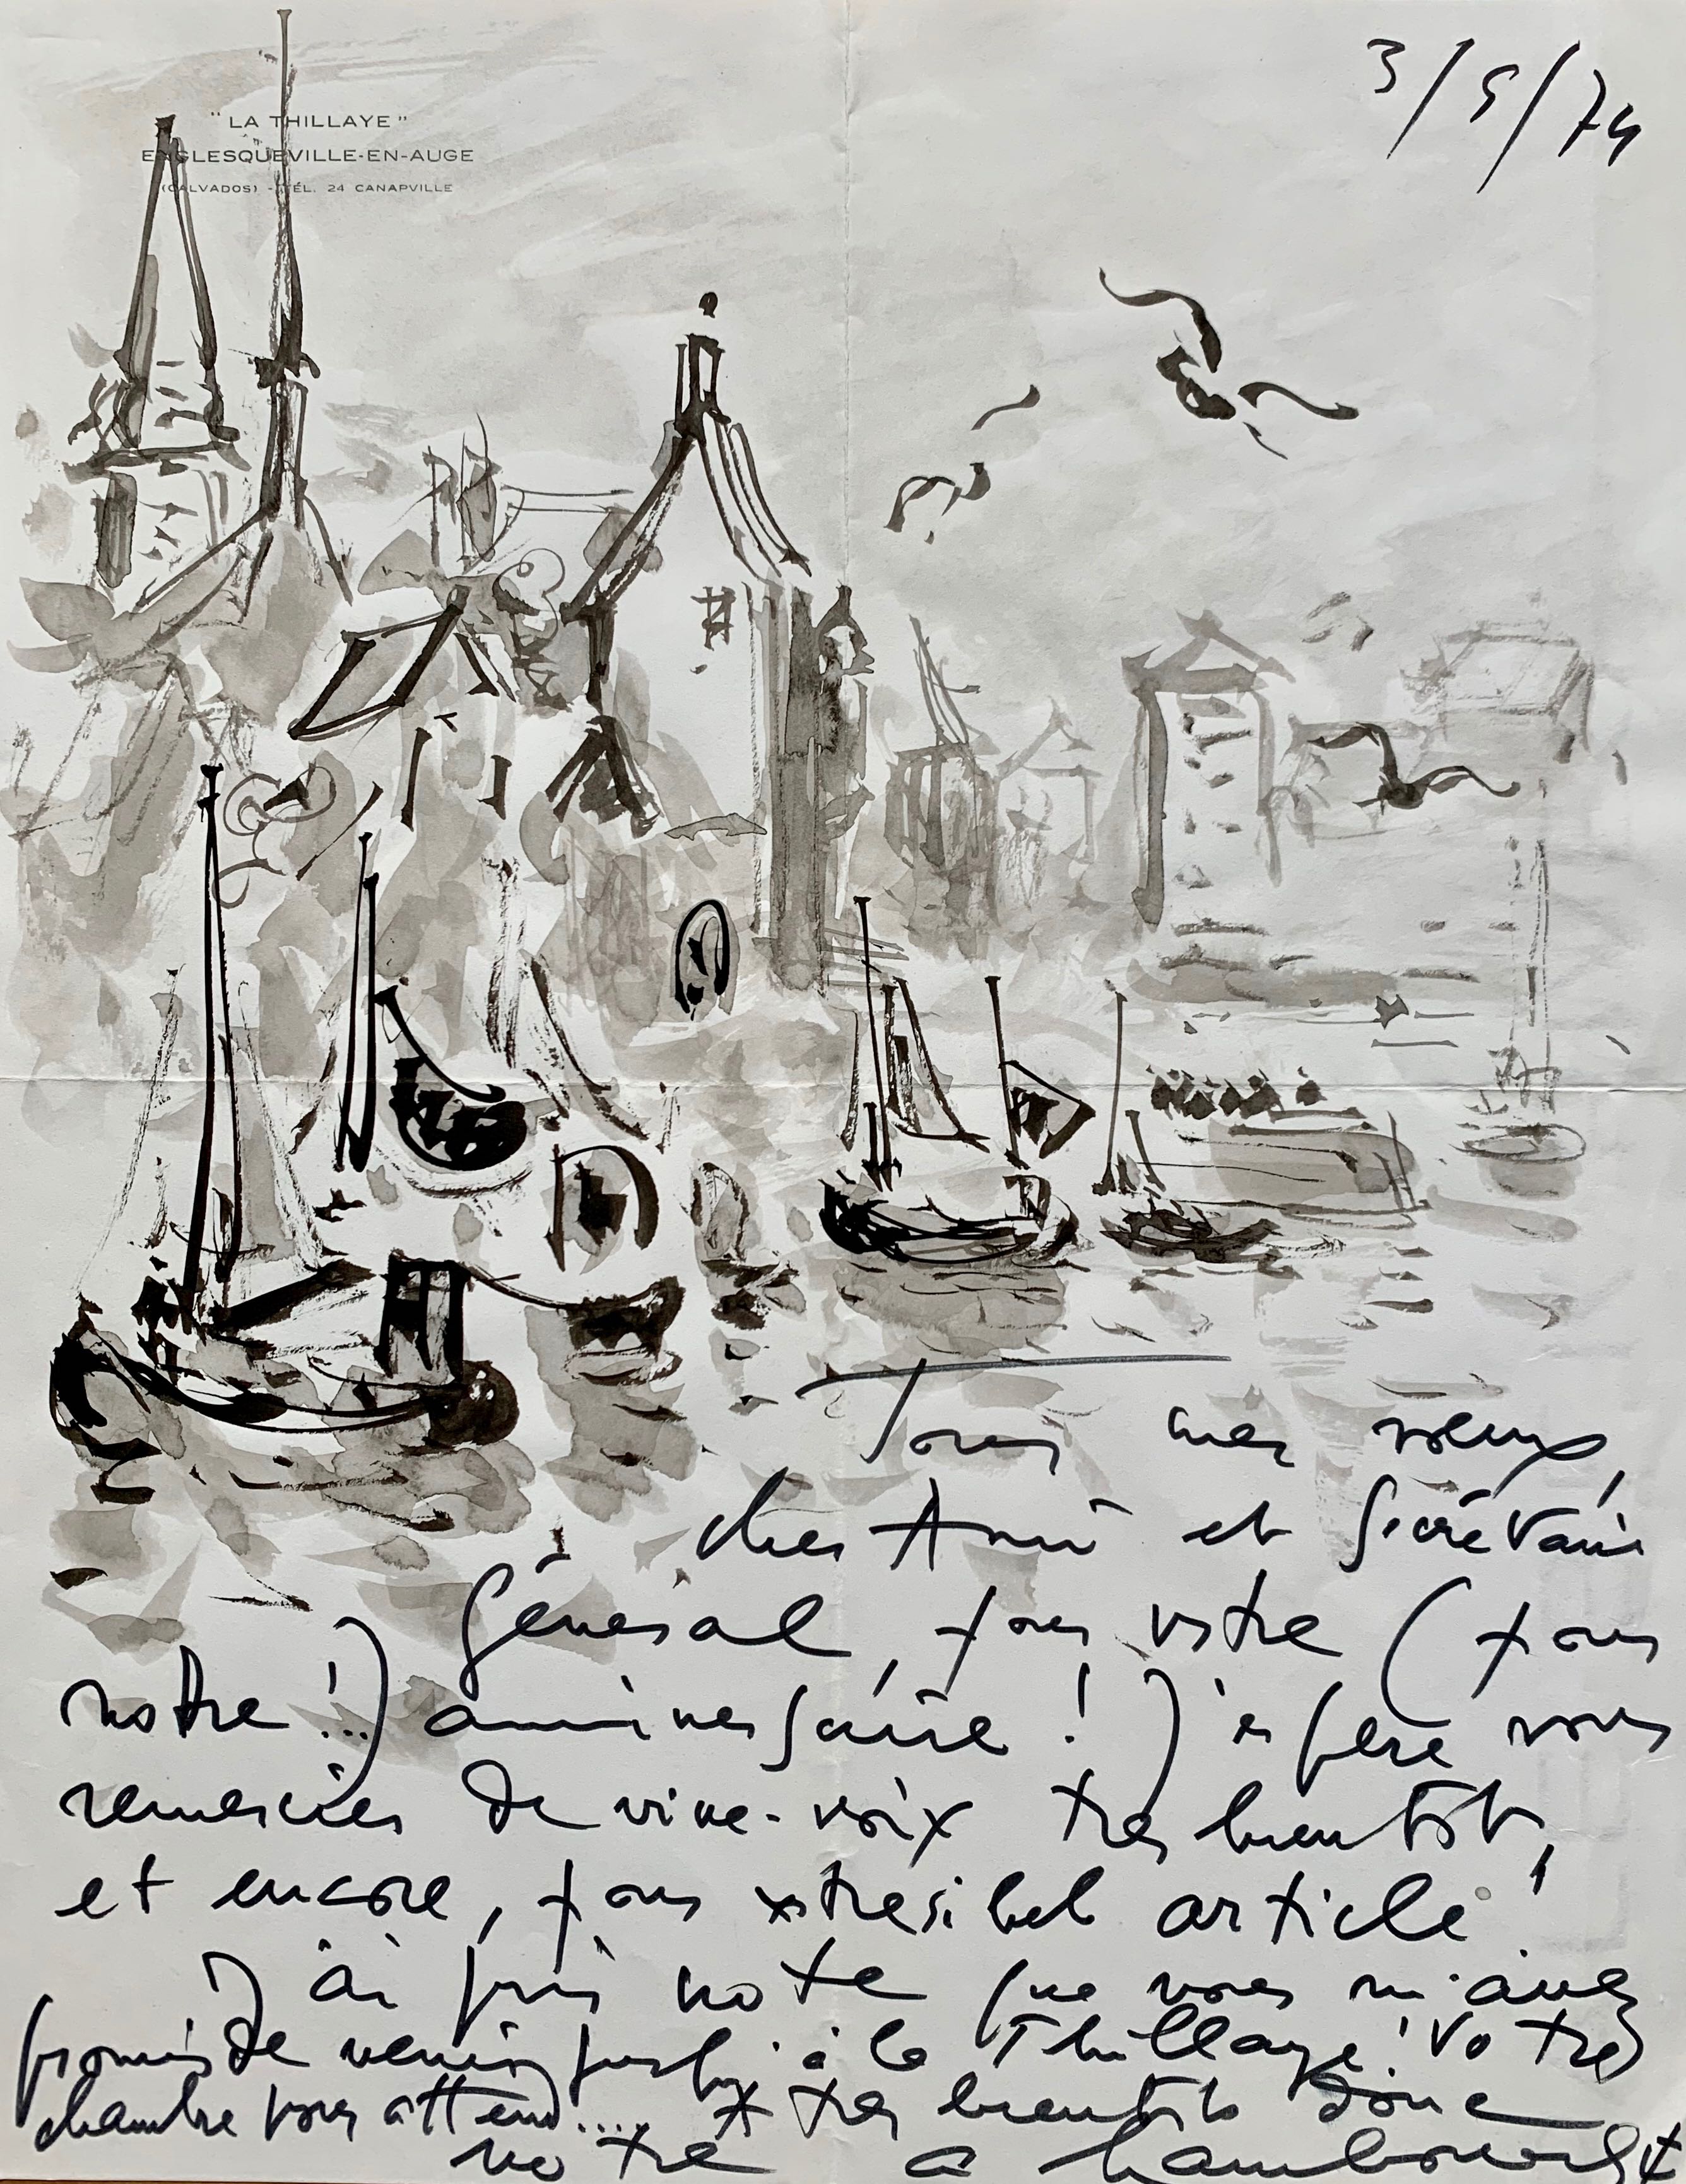 "LA THILLAYE"
ENGLESQUEVILLE-EN-AUGE
(CALVADOS) - TÉL. 24 CANAPVILLE
3/5/74
Tous mes voeux,
cher Ami et Secrétaire
Général, pour votre (pour
notre !...) anniversaire ! J'espère vous
remercier de vive-voix très bientôt,
et encore, pour si bel article !
J'ai pris note que vous m'avez
promis de venir jusqu' à la Thillaye ! Votre
chambre vous attend.... très bientôt donc
votre a hambourg